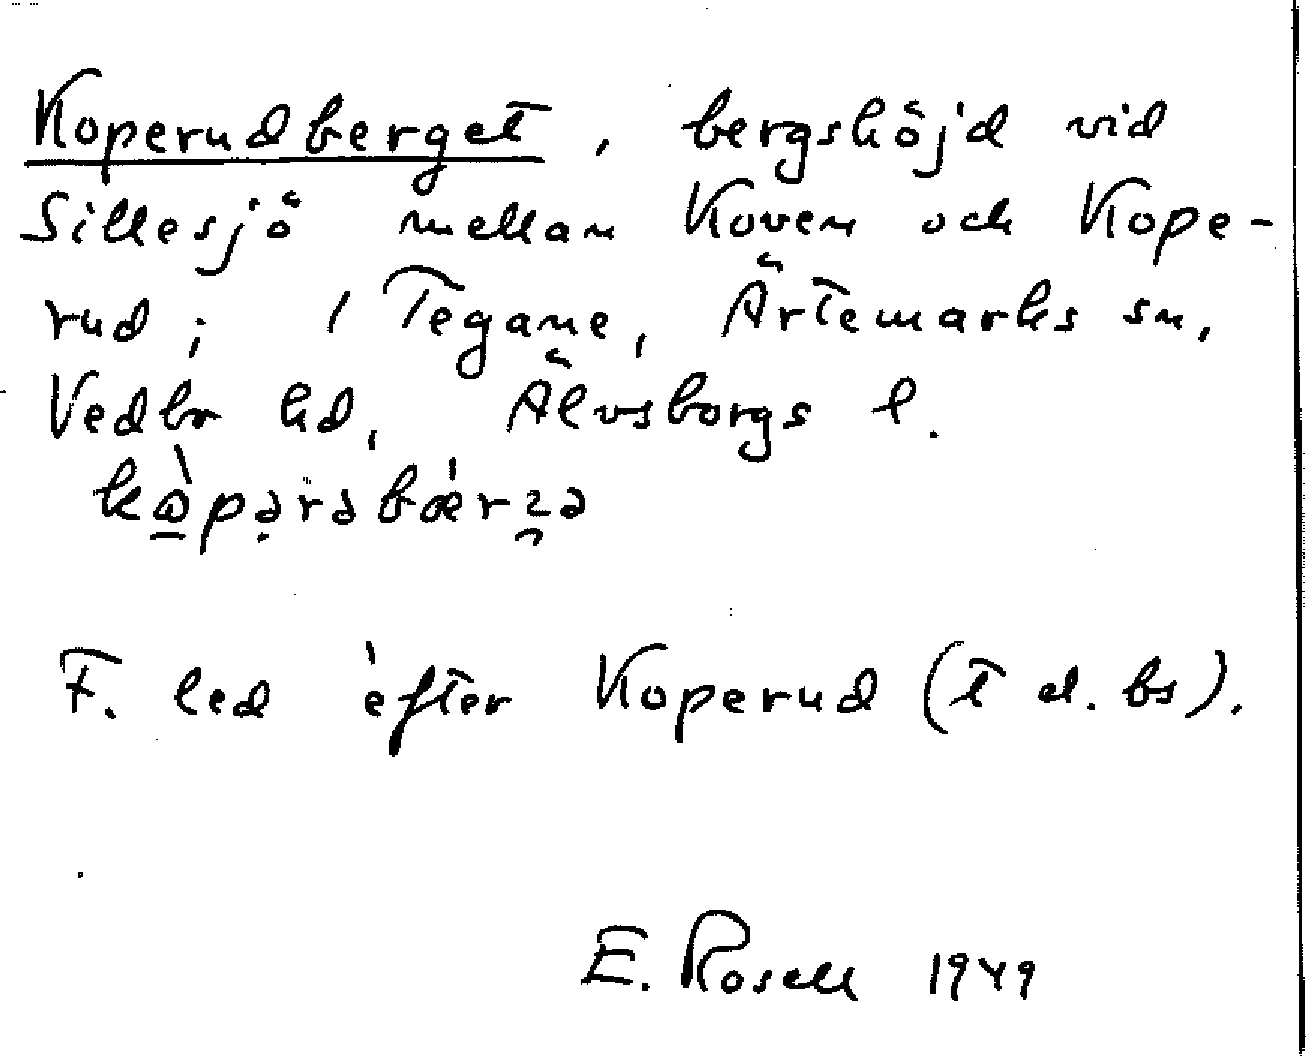 Koperudberget, bergshöjd vid
Sillesjö mellan Koven och Kope-
rud; i Tegane, Ärtemarks sn,
Vedbo hd, Älvsborgs l.
F. led efter Koperud (t d. bs).
E. Rosell 1949